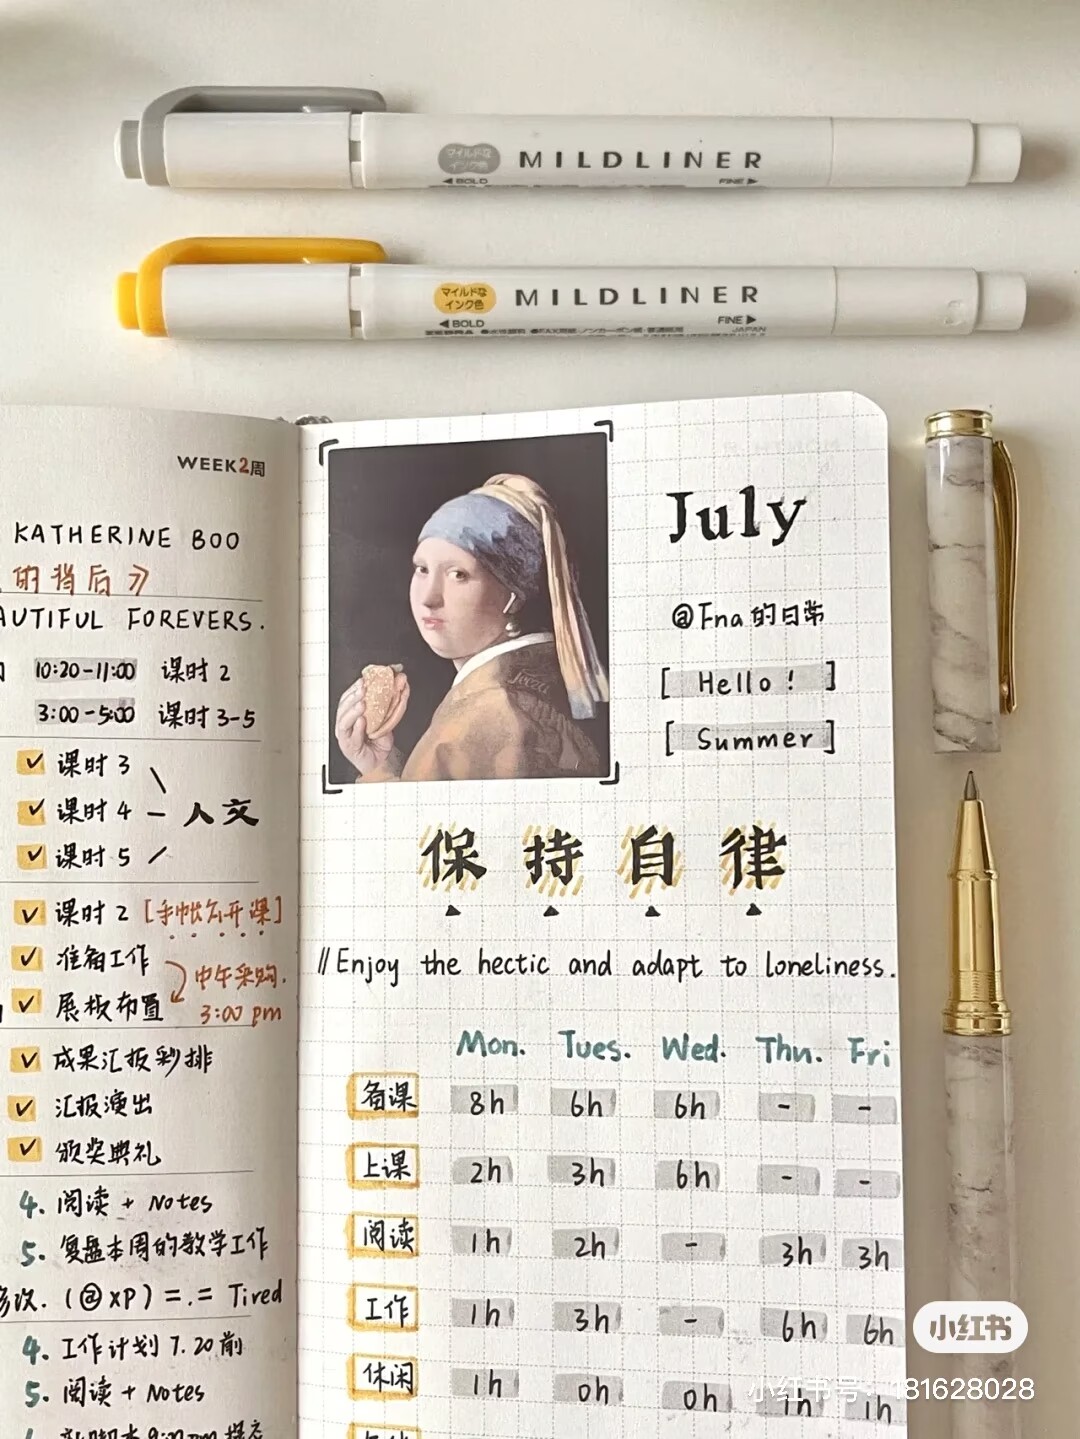 マイルドな
インク色
MILDLINER
◀BOLD FINE▶
マイルドな
インク色
MILDLINER
◀BOLD FINE▶
JAPAN
WEEK2周
KATHERINE BOO
的背后》
AUTIFUL FOREVERS.
10:20-11:00 课时2
3:00-5:00 课时3-5
课时3
课时4 — 人文
课时5
课时2 [手帐公开课]
准备工作
中午采购.
展板布置
3:00 pm
成果汇报彩排
汇报演出
颁奖典礼
4. 阅读 + Notes
5. 复盘本周的教学工作
改. (@xP) =.= Tired
4. 工作计划 7.20前
5. 阅读 + Notes
July
@Fna的日常
[ Hello! ]
[ Summer ]
保持自律
// Enjoy the hectic and adapt to loneliness.
Mon. Tues. Wed. Thu. Fri
备课 8h 6h 6h - -
上课 2h 3h 6h - -
阅读 1h 2h - 3h 3h
工作 1h 3h - 6h 6h
休闲 1h 0h 0h 1h 1h
小红书
小红书号：181628028